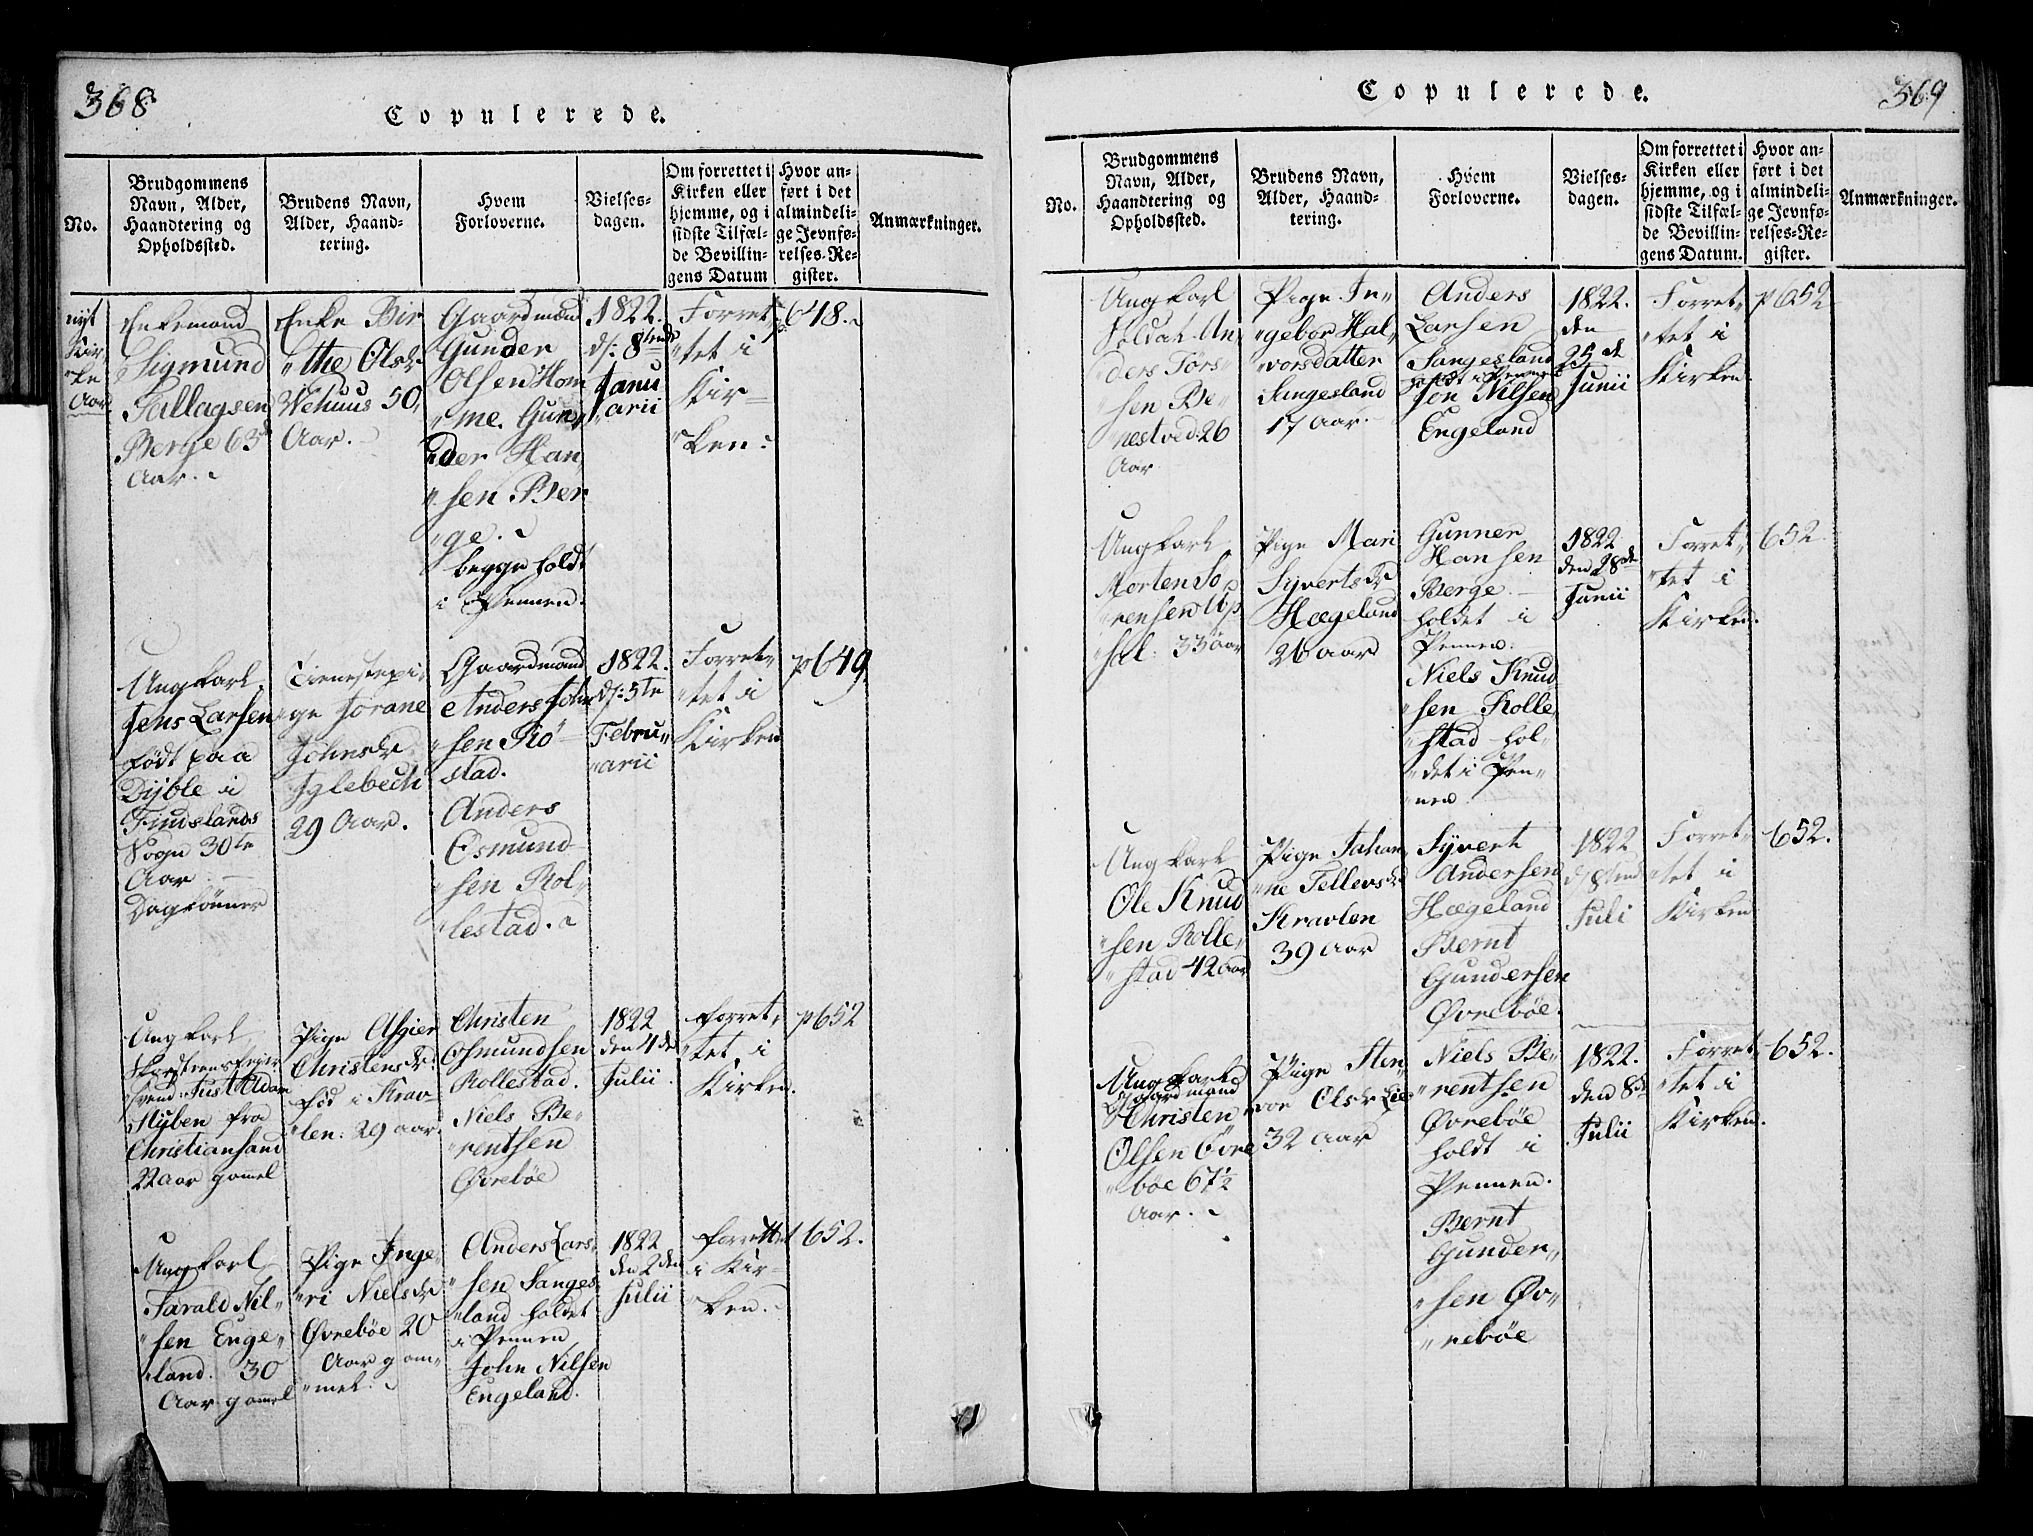 368
Copulerede.
No.
Brudgommens
Navn, Alder,
Haandtering og
Opholdssted.
Brudens Navn,
Alder, Haand-
tering.
Hvem
Forloverne.
Vielses-
dagen.
Om forrettet i
Kirken eller
hjemme, og i
sidste Tilfæl-
de Bevillin-
gens Datum
Hvor an-
ført i det
almindeli-
ge Jevnfø-
relses-Re-
gister.
Anmærkninger.
nyt
Kir
"ke
Aar
Enkemand
Sigmund
Tallagsen
Berge 63
Aar.
Enke Bir
"the Olsdr
Wehuus 50
Aar.
Gaardmænd
Gunder
Olsen Hom
"me. Gun
"der Han
"sen Ber
"ge.
begge holdt
i Pennen.
1822.
d: 8
Janu
"arii
Forret
"tet i
Kir=
"ken.
648.
Ungkarl
Jens Larsen
født paa
Dyble i
Findslands
Sogn 30te
Aar
Daglønner
Tienestepi
"ge Jorane
Johnsdr
Iglebech
29 Aar.
Gaardmand
Anders John
"sen Rø
stad.
Anders
Esmund
"sen Rol
"lestad.
1822.
d: 5te
Febru
"arii
Forret
"tet i
Kirken
p 649
Ungkarl
Skorsteensfeier
svend: Just Adam
Nyben fra
Christiansand
22 Aar gamel
Pige Asgier
Christensdr:
fød i Krav-
"len: 29 aar.
Christen
Osmundsen
Rollestad.
Niels Be-
"rentsen
Øvrebøe
1822
den 4de
Julii.
forret
"tet i
Kirken.
p 652
Ungkarl
Tarald Nil-
"sen Enge
"land. 30
Aar gamel
Pige Inge
"ri Nielsdr
Øvrebøe 20
Aar gam
"mel.
Anders Lars
"sen Sanges
"land holdet
i Pennen
John Nilsen
Engeland.
1822
den 2den
Julii
forrettet
i Kir-
"ken.
652.
369
Copulerede.
No.
Brudgommens
Navn, Alder,
Haandtering og
Opholdssted.
Brudens Navn,
Alder, Haand-
tering.
Hvem
Forloverne.
Vielses-
dagen.
Om forrettet i
Kirken eller
hjemme, og i
sidste Tilfæl-
de Bevillin-
gens Datum.
Hvor an-
ført i det
almindeli-
ge Jevnfø-
relses-Re-
gister.
Anmærkninger.
Ungkarl
Soldat An
"ders Tørs
"sen Be-
"nestved 26
Aar
Pige In-
"gebor Hal
"vorsdatter
Sangesland
17 Aar.
Anders
Larsen
Sangesland
holdt i Pennen
Jon Nilsen
Engeland
1822.
den
25de
Junii
Forret
"tet i
Kirken.
p 652
Ungkarl
Morten So
"rensen Up
"sal: 33 aar
Pige Mari
Syvertsdr
Hægeland
26 aar
Gunner
Hansen
Berge
holdet i
Pennen.
Niels Knud
"sen Rolle
"stad hol-
"det i Pen
"nen
1822
den 28de
Junii
Forret
"tet i
Kirken.
652.
Ungkarl
Ole Knud
"sen Rolle
"stad 42 aar
Pige Johan
"ne Tellevsdr
Kravlen
39 Aar
Syvert
Andersen
Hægeland
Bernt
Gundersen
Øvrebøe.
1822
Juli
Forret
"tet i
Kirken
652.
Ungkarl
Gaardmand
Christen
Olsen Øvre
"bøe 67½
Aar.
Pige Sten
"vor Olsdr Lie
32 aar
Niels Be-
"rentsen
Øvrebøe
holdt i
Pennen.
Bernt
Gunder
"sen Øv
"rebøe
1822.
den 8de
Julii
Forret
"tet i
Kirken.
652.